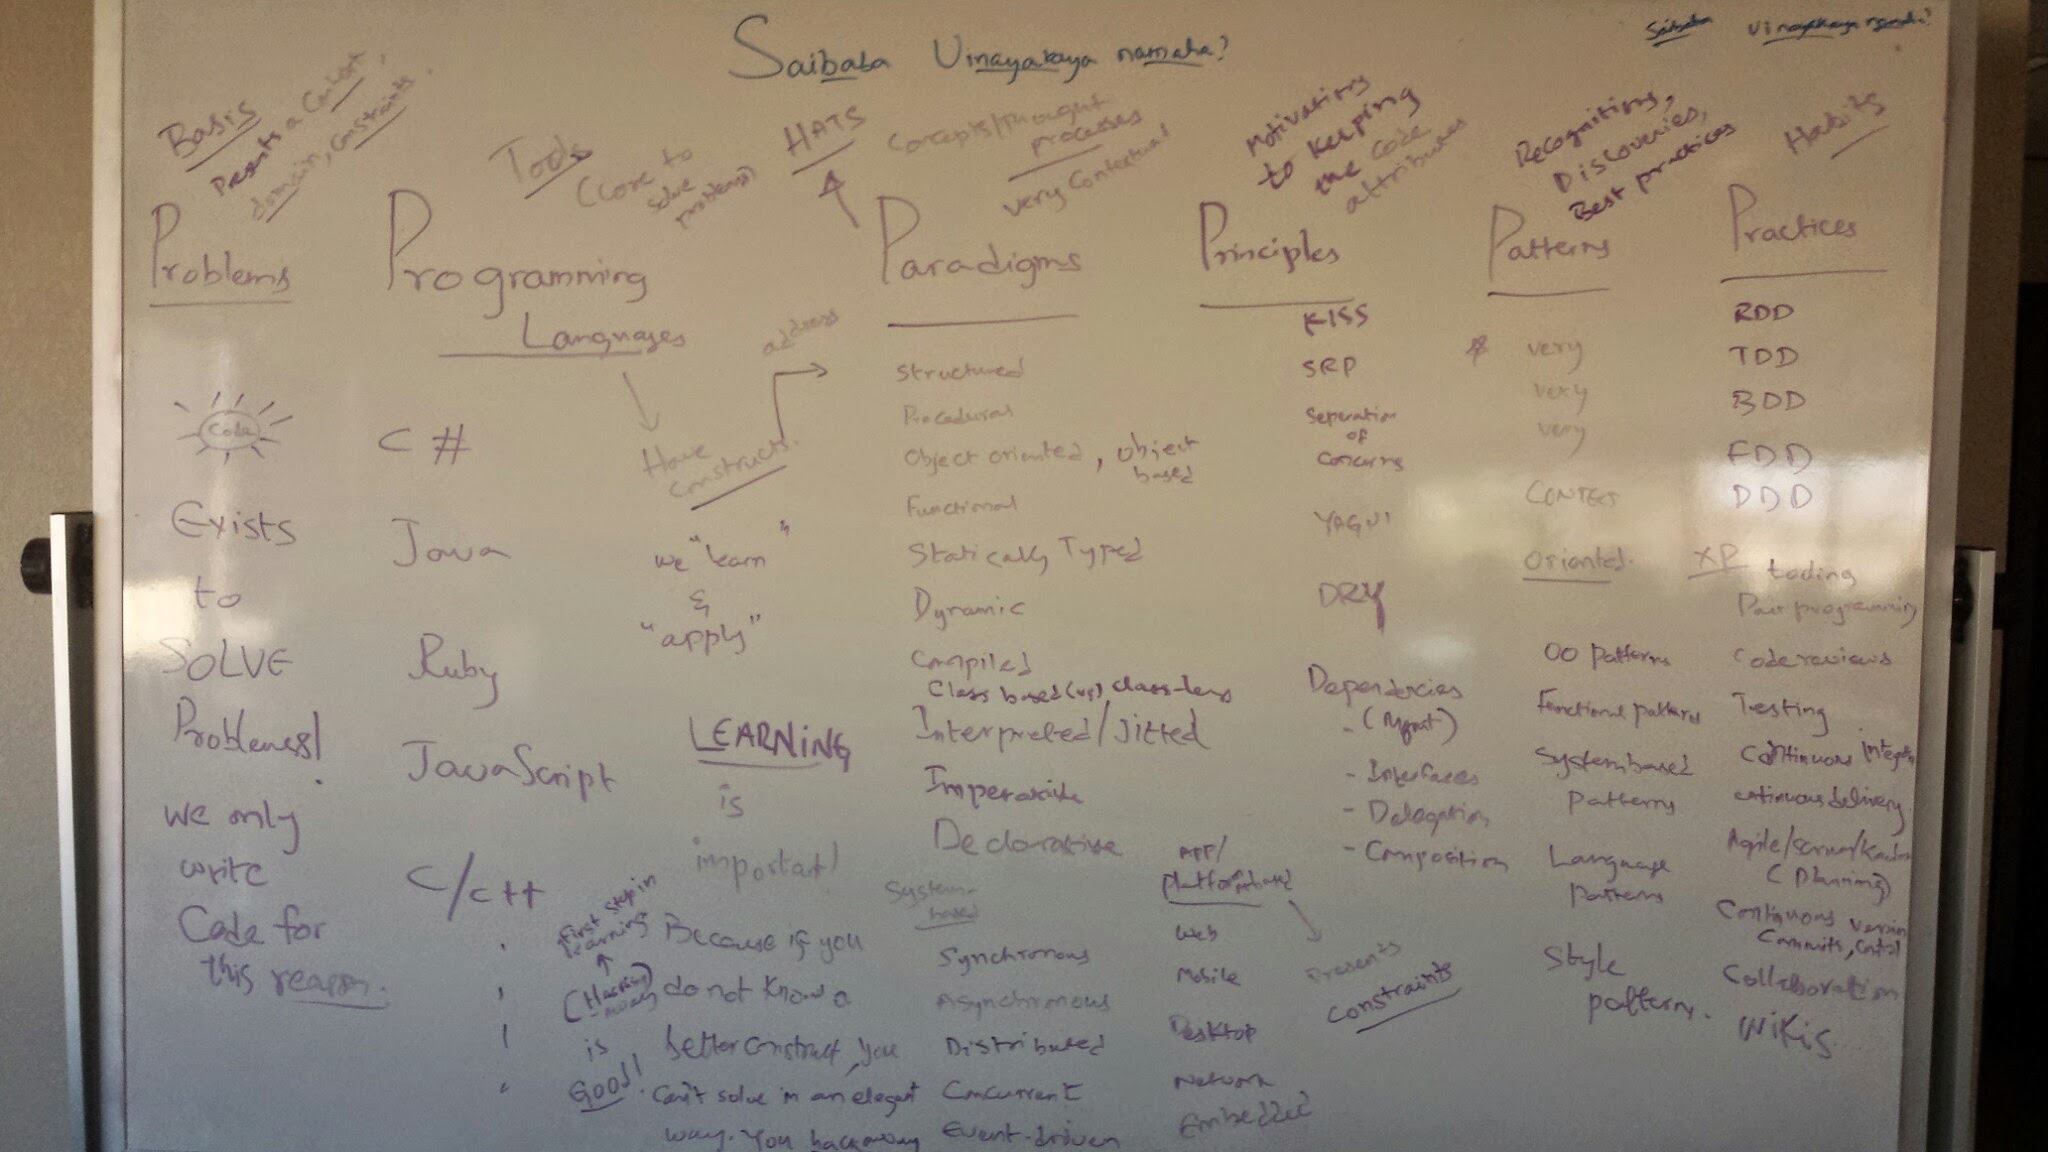 Saibaba Vinayakaya namaha?
Saibaba Vinayakaya
Basis
Presents a Context,
domain, constraints.
Problems
Code
Exists
to
SOLVE
Problems!
We only
write
Code for
this reason.
Tools
(Core to
solve
problems)
Programming
Languages
C#
Java
Ruby
JavaScript
C/C++
Have
constructs.
address
we "learn"
&
"apply"
LEARNING
is
important!
Because if you
do not know a
better construct, you
can't solve in an elegant
way. You hack away
First step in
learning
(Hacking
away)
is
GOOD!
HATS
Concepts/thought
processes
very Contextual
Paradigms
Structured
Procedural
Object oriented, Object
based
Functional
Statically Typed
Dynamic
Compiled
Class based (vs) class-less
Interpreted/Jitted
Imperative
Declarative
Systems
based
Synchronous
Asynchronous
Distributed
Concurrent
Event-driven
APP/
platform based
Web
Mobile
Desktop
Network
Embedded
Presents
constraints
Motivations
to keeping
the code
attributes
Principles
KISS
SRP
Seperation
of
concerns
YAGNI
DRY
Dependencies
- (Mgmt)
- Interfaces
- Delegation
- Composition
Recognitions,
Discoveries,
Best practices
Patterns
* very
very
very
CONTEXT
Oriented.
OO patterns
Functional patterns
System based
patterns
Language
patterns
Style
patterns.
Habits
Practices
RDD
TDD
BDD
FDD
DDD
XP
Pair programming
Code reviews
Testing
Continuous Integrtn
continuous delivery
Agile/Scrum/Kanban
(Planning)
Continuous version
Commits, control
Collaboration
Wikis